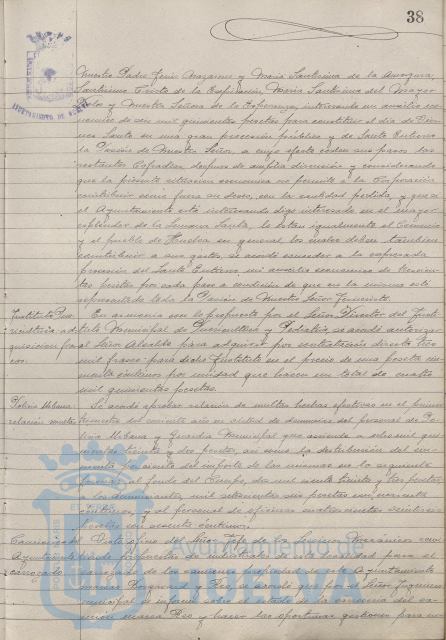 38
AYUNTAMIENTO DE HUELVA
Nuestro Padre Jesús Nazareno y María Santísima de la Amargura,
Santísimo Cristo de la Expiración, María Santísima del Mayor
Dolor y Nuestra Señora de la Esperanza, interesando un auxilio eco-
nómico de seis mil quinientas pesetas para constituir el día de Vier-
nes Santo en una gran procesión pública y de Santo Entierro
la Pasión de Nuestro Señor, a cuyo efecto ceden sus pasos las
restantes Cofradías, después de amplia discusión y considerando
que la presente situación económica no permite a la Corporación
contribuir como fuera su deseo, con la cantidad pedida, y que si
el Ayuntamiento está interesando digo interesado en el mayor
esplendor de la Semana Santa, lo están igualmente el Comercio
y el pueblo de Huelva en general, los cuales deben también
contribuir a sus gastos, se acordó conceder a la expresada
procesión del Santo Entierro, un auxilio económico de
pesetas por cada paso a condición de que en la misma esté
representada toda la Pasión de Nuestro Señor Jesucristo.
En armonía con lo propuesto por el Señor Director del Insti-
tuto Municipal de Puericultura y Pediatría, se acordó autorizar
al Señor Alcalde para adquirir por contratación directa tres
mil frascos para dicho Instituto en el precio de una peseta cin-
cuenta céntimos por unidad que hacen un total de cuatro
mil quinientas pesetas.
Policía Urbana
relación multas
Se acordó aprobar relación de multas hechas efectivas en el primer
trimestre del corriente año en virtud de denuncias del personal de Po-
licía Urbana y Guardia Municipal que asciende a
treinta y dos pesetas, así como la distribución del cin-
cuenta por ciento del importe de las mismas en la siguiente
forma: al fondo del Cuerpo, dos mil ciento treinta y tres pesetas,
a los denunciantes, mil setecientas seis pesetas con cuarenta
céntimos y al personal de oficinas cuatrocientas veintiseis
pesetas con sesenta céntimos.
Visto oficio del Señor Jefe de los Servicios Mecánicos
propiedad de este Ayuntamiento
se acordó que por el Señor Ingeniero
municipal se informe sobre el estado de la carrocería del ca-
mión marca Reo y hacer las oportunas gestiones para
Ayuntamiento de
HUELVA